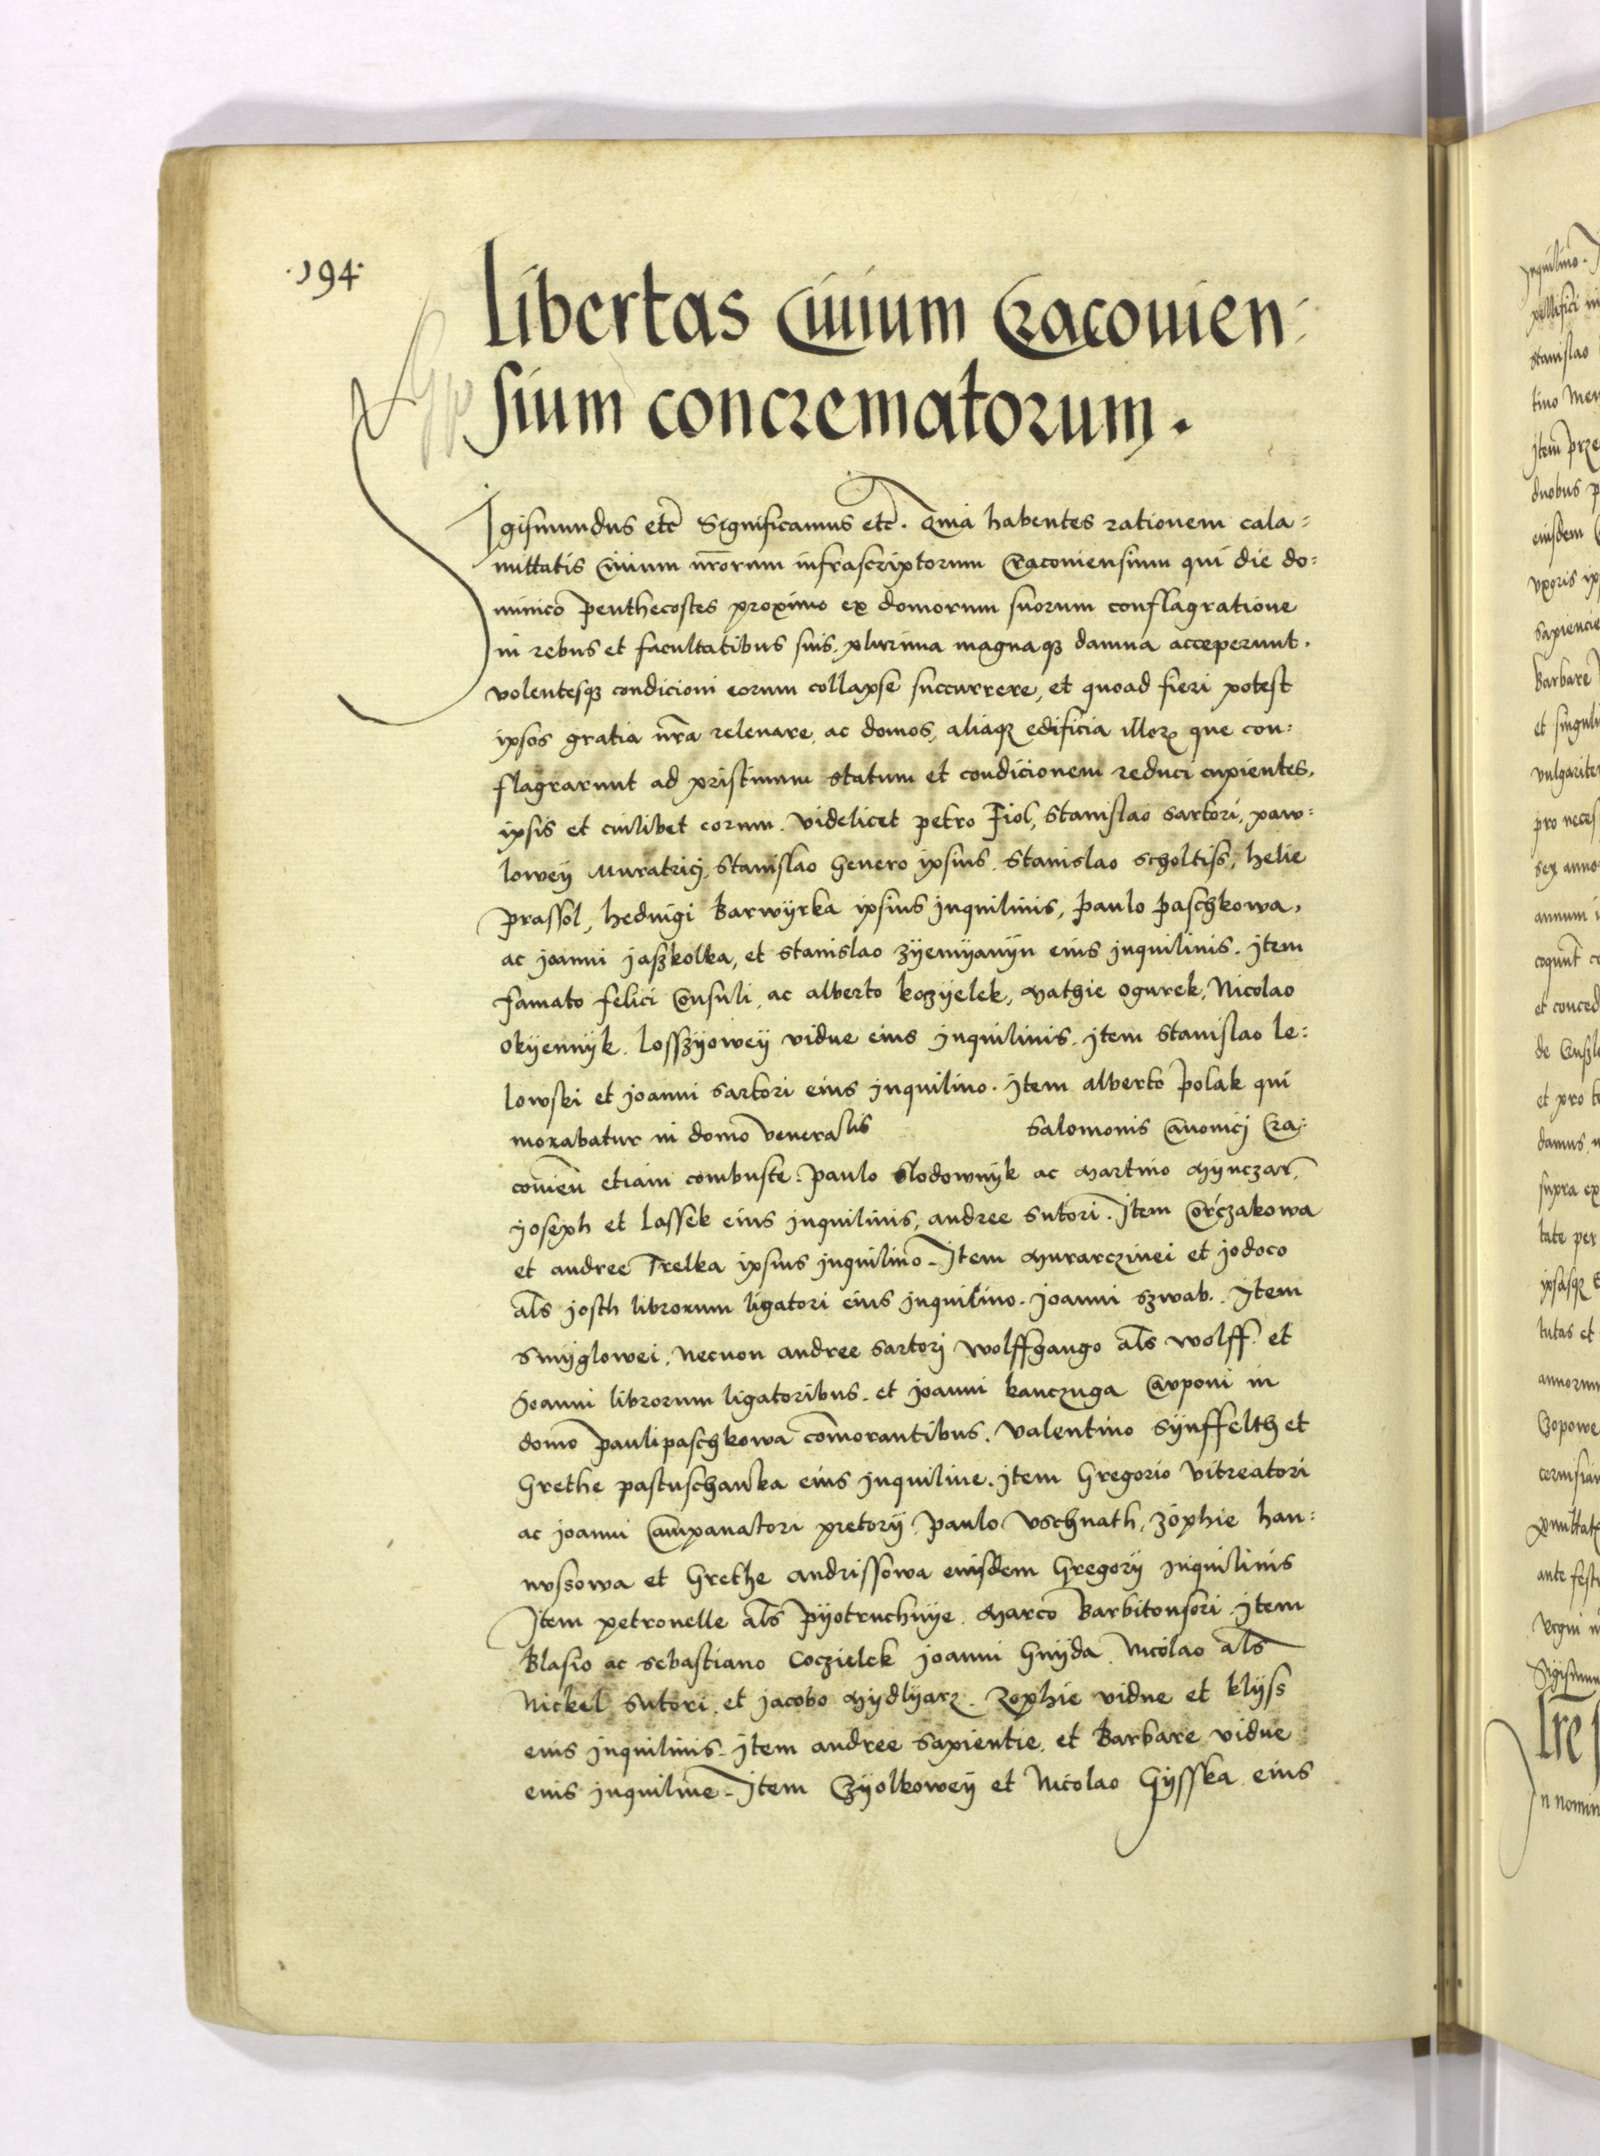 ·194·
Libertas Ciuium Cracouien:
sium concrematorum.
Sigismundus etc̄ Significamus etc̄. Quia habentes rationem cala:
mittatis Ciuium nr̄orum infrascriptorum Cracouiensium qui die do:
minico Penthecostes proximo ex domorum suorum conflagratione
in rebus et facultatibus suis, plurima magnaqꝫ damna acceperunt.
volentesqꝫ condicioni eorum collapse succurrere, et quoad fieri potest
ipsos gratia nr̄a releuare, ac domos, aliaqꝫ edificia illorꝫ que con:
flagrarunt ad pristinum statum et condicionem reduci cupientes,
ipsis et cuilibet eorum. videlicet petro Fiol, Stanislao Sartori, paw:
lowey Muratrici, Stanislao Genero ipsius, Stanislao Scholtiss, helie
Prassol, hedwigi Barwyrka ipsius inquilinis, Paulo Paschkowa,
ac joanni jaszkolka, et Stanislao zyemyanyn eius inquilinis. Item
famato felici Consuli, ac alberto kozyelek, Mathie Ogurek, Nicolao
Okyennyk, Losszyowey vidue eius inquilinis. Item Stanislao le:
lowski et joanni sartori eius inquilino. Item alberto Polak qui
morabatur in domo venerabilis Salomonis Canonici Cra:
couien̄ etiam combuste. Paulo Slodownyk ac Martino Mynczar,
joseph et Lassek eius inquilinis, andree sutori. Item Corczakowa
et andree Trelka ipsius inquilino. Item Murarczinei et jodoco
als̄ josth librorum ligatori eius inquilino. joanni szwab. Item
smyglowei, necnon andree sartorj wolffgango als̄ wolff et
joanni librorum ligatoribus. et joanni kanczuga Cauponi in
domo Pauli paschkowa com̄orantibus. valentino Synffelth et
Grethe pastuschanka eius inquiline. Item Gregorio vitreatori
ac joanni Campanatori pretorij, Paulo Vschnath, zophie han:
nussowa et Grethe andrissowa eiusdem Gregorij inquilinis
Item petronelle als̄ Pyotruchnye, Marco Barbitonsori. Item
Blasio ac sebastiano Coczielek joanni Gnyda, Nicolao als̄
Nickel sutori, et jacobo Mydlyarz. Zophie vidue et klyss
eius inquilinis. Item andree Sapientie, et Barbare vidue
eius inquiline. Item Czyolkowey et Nicolao Gysska eius